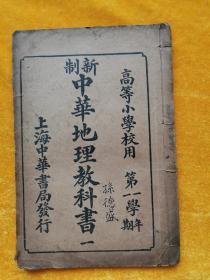 高等小學校用
第一學年
第一學期
新制
中華地理教科書 一
孫德盛
上海中華書局發行